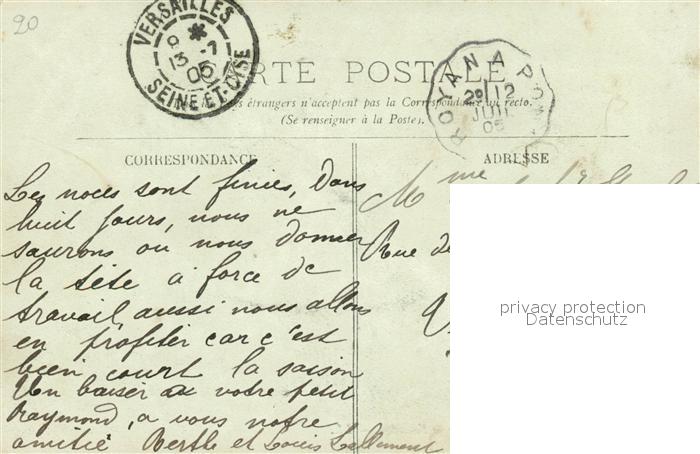 20
VERSAILLES
8 *
13 -7
05
SEINE-ET-OISE
CARTE POSTALE
ROYAN A PO
2e 12
JUIL
05
étrangers n'acceptent pas la Correspondance au recto.
(Se renseigner à la Poste).
CORRESPONDANCE
ADRESSE
Les noces sont finies, Dans
huit jours, nous ne
saurons ou nous donner
la tête a force de
travail, aussi nous allons
en profiter car c'est
bien court la saison
Un baiser au votre petit
Raymond, a vous notre
amitié Berthe et Louis Lallement
Mme
Rue de
privacy protection
Datenschutz